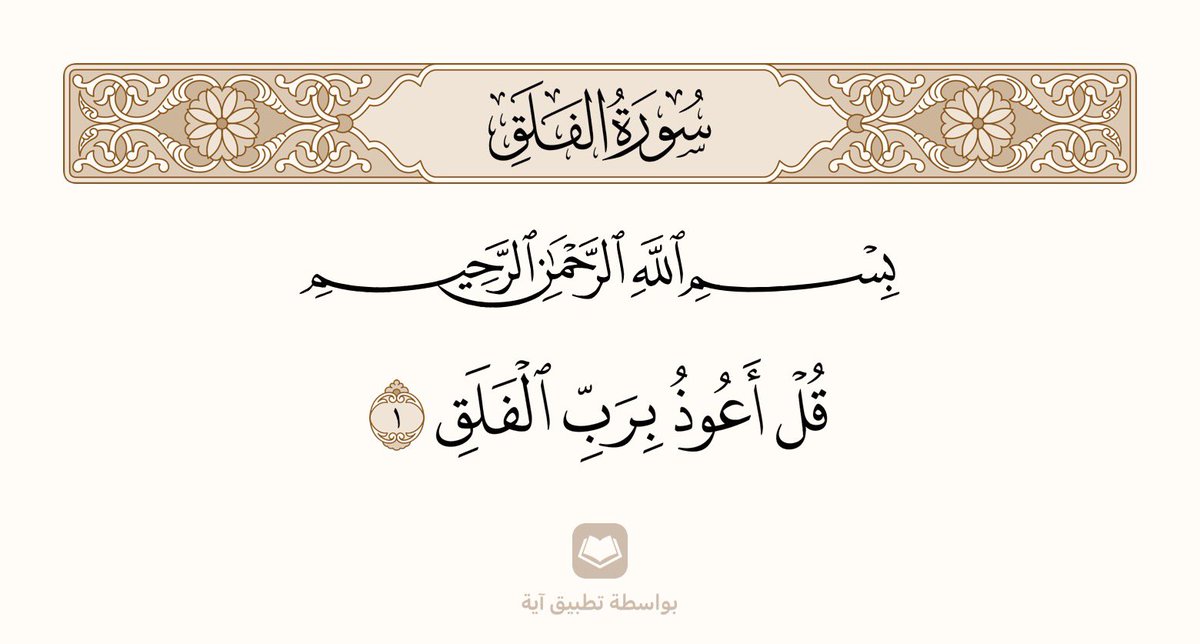 سُورَةُ الفَلَقِ
بِسْمِ ٱللَّهِ ٱلرَّحْمَٰنِ ٱلرَّحِيمِ
قُلْ أَعُوذُ بِرَبِّ ٱلْفَلَقِ ١
بواسطة تطبيق آية